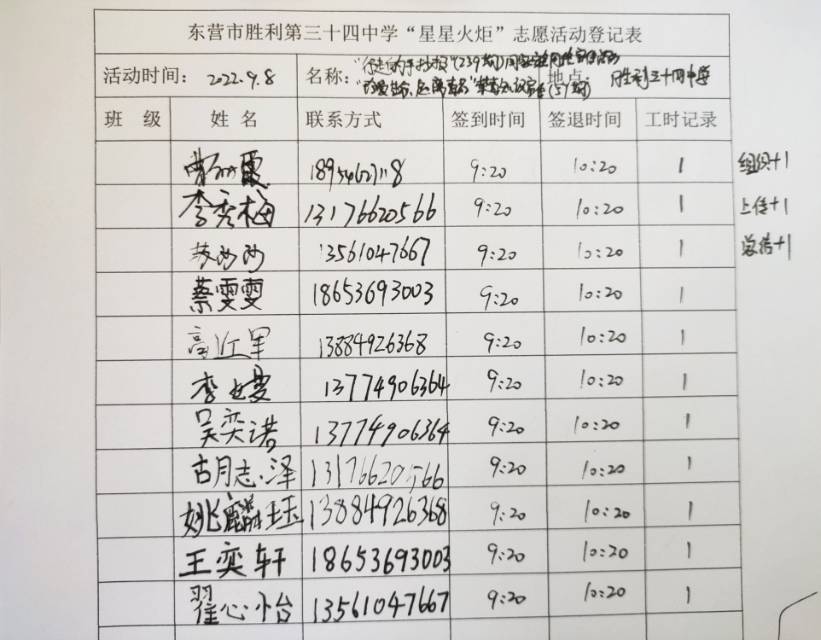 东营市胜利第三十四中学“星星火炬”志愿活动登记表
活动时间： 2022.9.8 名称： 地点： 胜利三十四中学
班 级 姓 名 联系方式 签到时间 签退时间 工时记录
霞 18954627118 9:20 10:20 1 组织+1
李秀梅 13176620566 9:20 10:20 1 上传+1
13561047667 9:20 10:20 1 总结+1
蔡雯雯 18653693003 9:20 10:20 1
高近军 13884926368 9:20 10:20 1
李 13774906364 9:20 10:20 1
吴奕诺 13774906364 9:20 10:20 1
胡志泽 13176620566 9:20 10:20 1
姚麟珏 13884926368 9:20 10:20 1
王奕轩 18653693003 9:20 10:20 1
翟心怡 13561047667 9:20 10:20 1